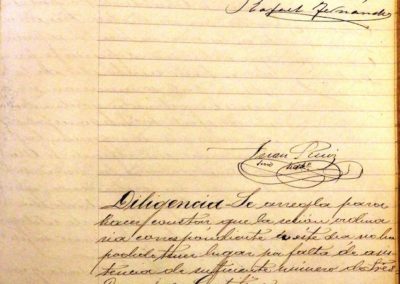 Rafael Fernández
Juan Ruiz
Diligencia Se arregla para
hacer constar que la sesión ordina
ria correspondiente a este día no ha
podido tener lugar por falta de asis
tencia de suficiente número de Sres